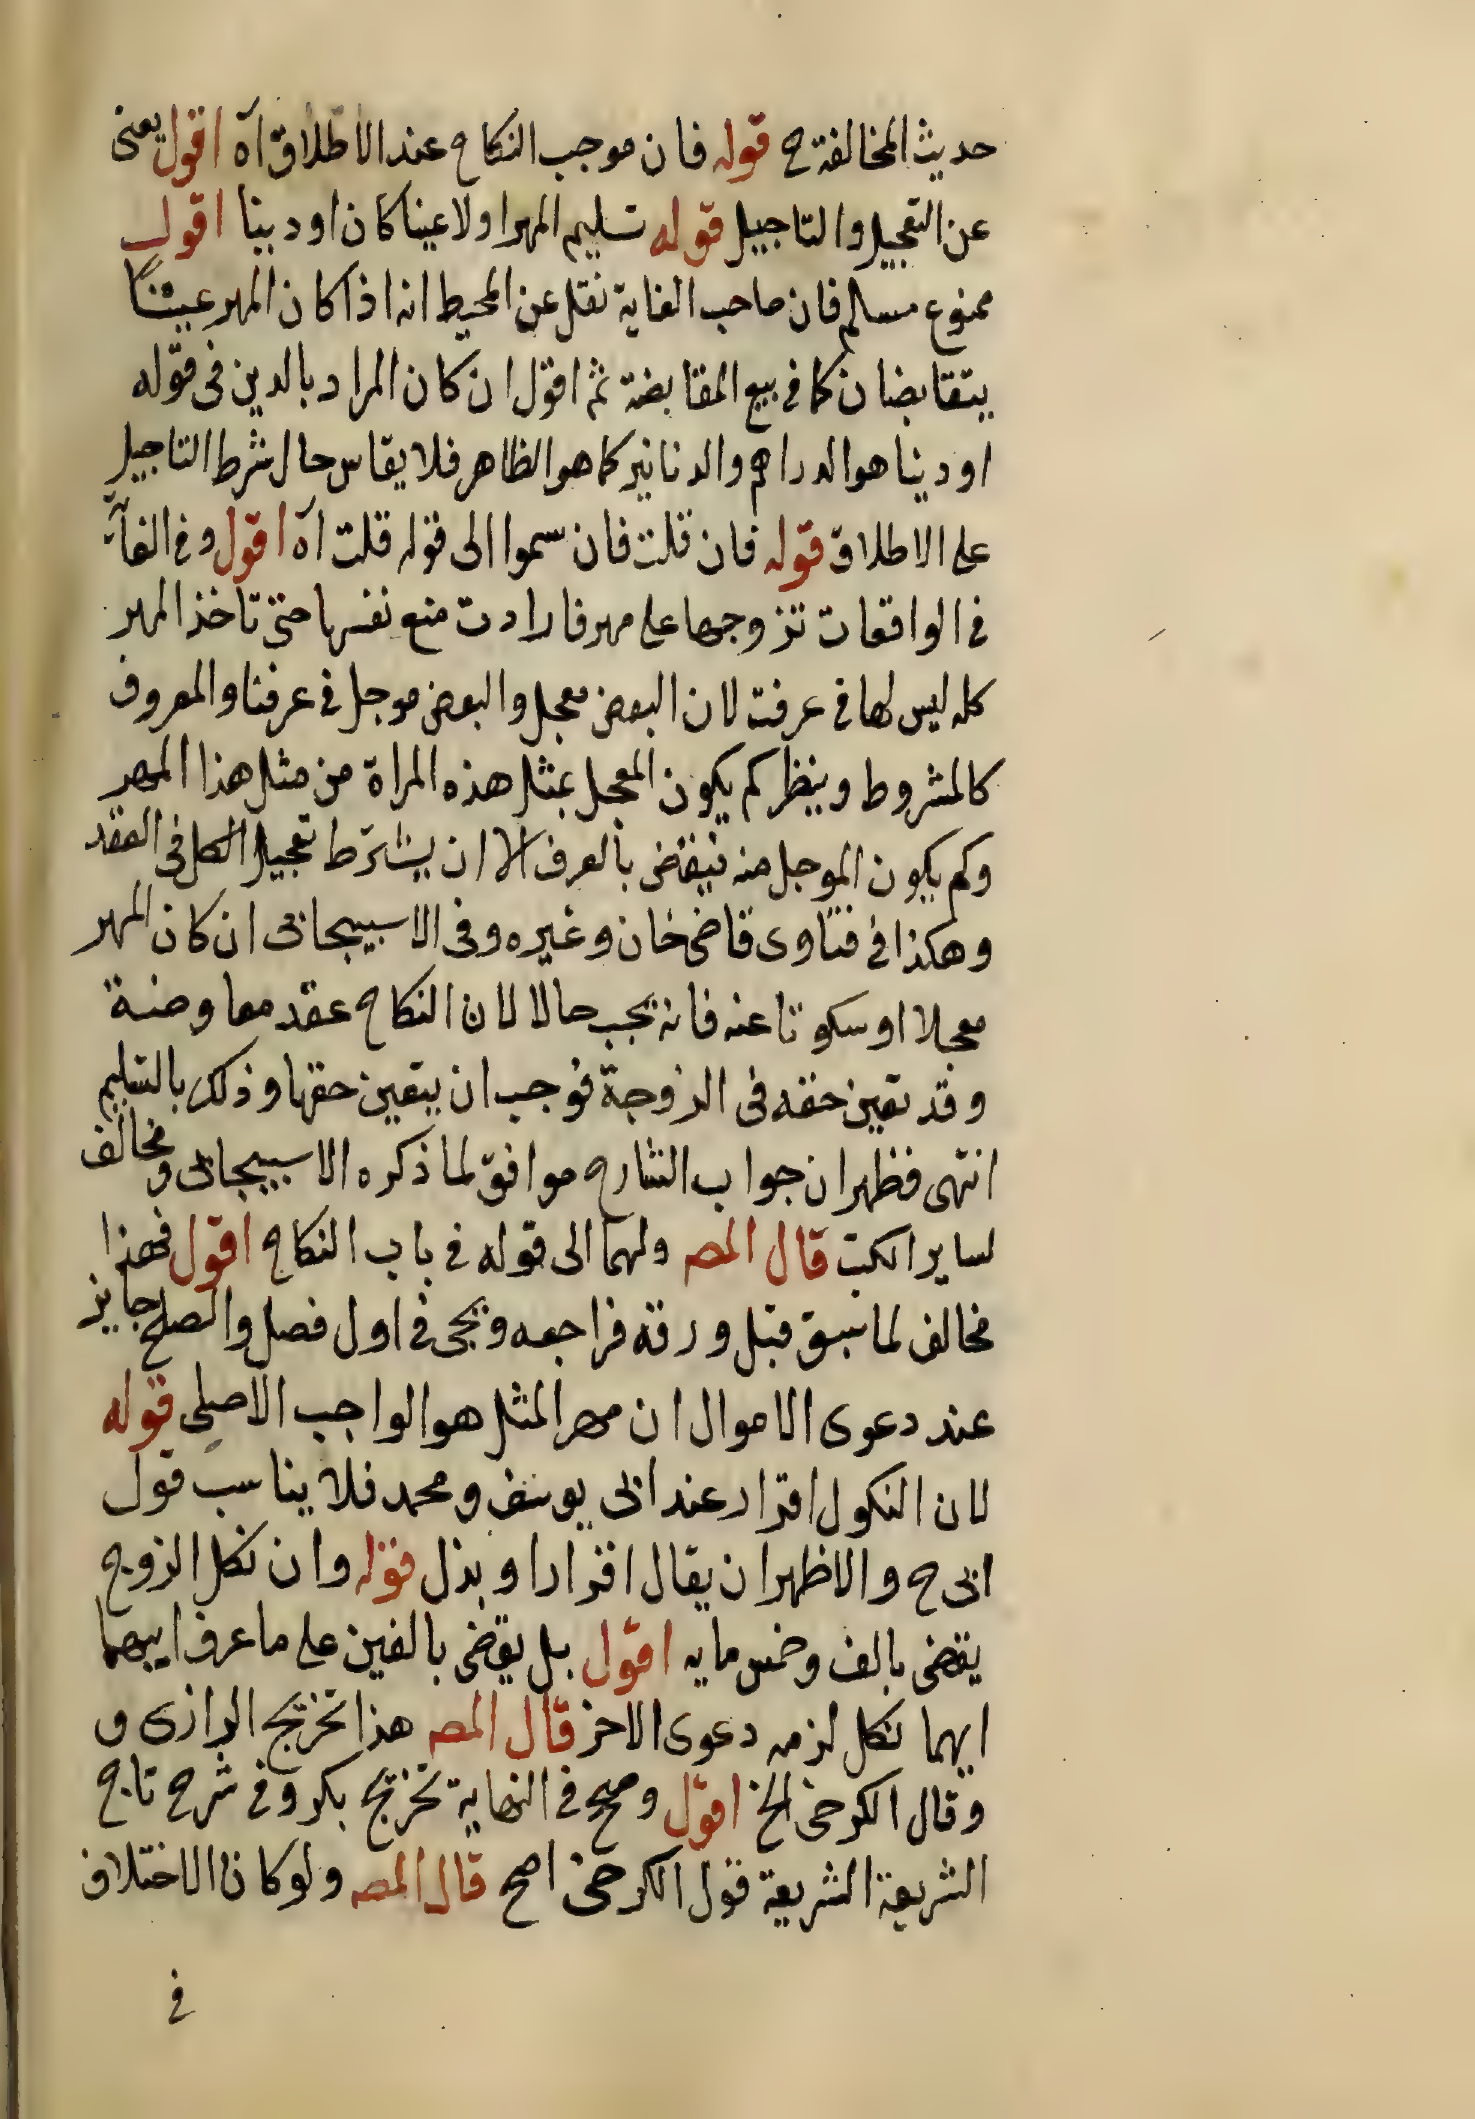 حديث المخالفة ح قوله فان موجب النكاح عند الاطلاق آه اقول يعنى
عن التعجيل والتاجيل قوله تسليم المهر اولا عينا كان او دينا اقول
ممنوع مسالم فان صاحب الغاية نقل عن المحيط انه اذا كان المهر عينا
يتقابضان كما فى بيع المقابضة ثم اقول ان كان المراد بالدين فى قوله
او دينا هو الدراهم والدنانير كما هو الظاهر فلا يقاس حال شرط التاجيل
على الاطلاق قوله فان قلت فان سموا الى قوله قلت آه اقول وفى الغاية
فى الواقعات تزوجها على مهر فارادت منع نفسها حتى تاخذ المهر
كله ليس لها فى عرفنا لان البعض معجل والبعض موجل فى عرفنا والمعروف
كالمشروط وينظر كم يكون المعجل بمثل هذه المراة من مثل هذا المهر
وكم يكون الموجل منه فيقضى بالعرف الا ان يشترط تعجيل الكل فى العقد
وهكذا فى فتاوى قاضى خان وغيره وفى الاسبيجانى ان كان المهر
معجلا او سكوتا عنه فانه يجب حالا لان النكاح عقد معاوضة
وقد تعين حقه فى الزوجة فوجب ان يتعين حقها وذلك بالتسليم
انتهى فظهر ان جواب الشارح موافق لما ذكره الاسبيجانى ومخالف
لساير الكتب قال المصـ ولهما الى قوله فى باب النكاح اقول فهذا
مخالف لما سبق قبل ورقة فراجعه ويجى فى اول فصل والصلح جايز
عند دعوى الاموال ان مهر المثل هو الواجب الاصلى قوله
لان النكول اقرار عند ابى يوسف ومحمد فلا يناسب قول
ابى ح والاظهر ان يقال اقرار او بذل قوله وان نكل الزوج
يقضى بالف وخمس مايه اقول بل يقضى بالفين على ما عرف ايهما
ايهما نكل لزمه دعوى الاخر قال المصـ هذا تخريج الرازى و
وقال الكرخى الخ اقول وصحح فى النهاية تخريج بكر وفى شرح تاج
الشريعة الشريعة قول الكرخى اصح قال المصـ ولو كان الاختلاف
فى